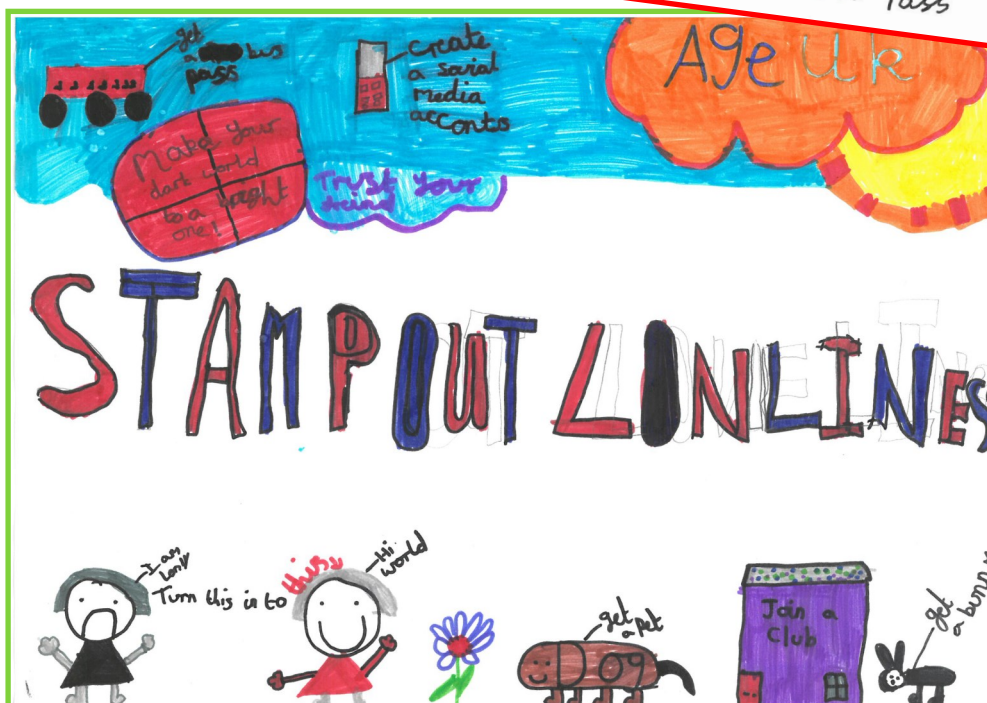 Pass
get
a bus
pass
create
a social
media
acconts
Age Uk
Make your
dark world
to a bright
one!
Trust your
STAMP OUT LONLINES
I am
Turn this in to this
Hi
world
get
a pet
DOG
Join a
Club
get
a bunny